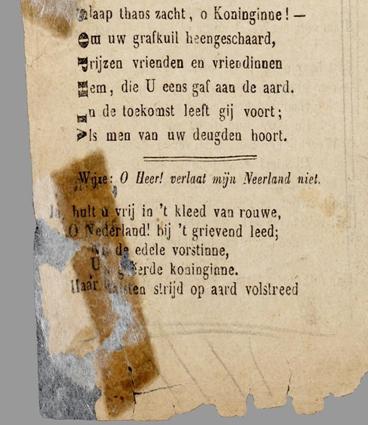 slaap thans zacht, o Koninginne! —
Om uw grafkuil heengeschaard,
Prijzen vrienden en vriendinnen
Hem, die U eens gaf aan de aard.
In de toekomst leeft gij voort;
Als men van uw deugden hoort.
Wijze: O Heer! verlaat mijn Neerland niet.
hult u vrij in 't kleed van rouwe,
O Nederland! bij 't grievend leed;
de edele vorstinne,
koninginne.
Haar strijd op aard volstreed